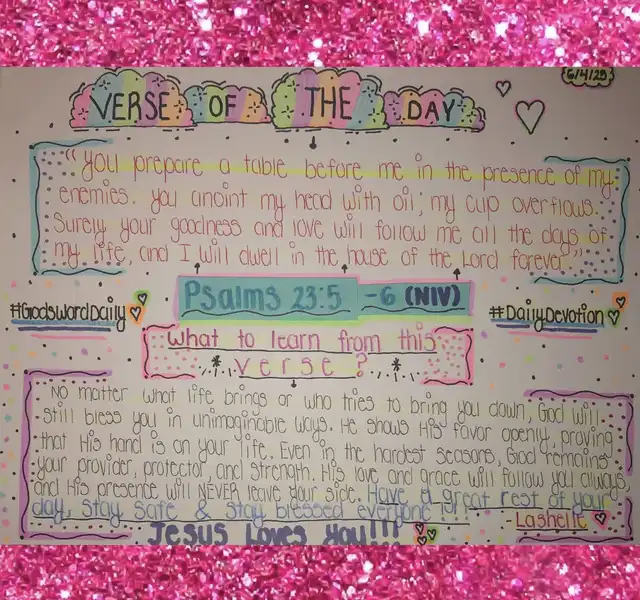 6/4/25
VERSE OF THE DAY
"You prepare a table before me in the presence of my
enemies. You anoint my head with oil; my cup overflows.
Surely your goodness and love will follow me all the days of
my life, and I will dwell in the house of the Lord forever."
Psalms 23:5-6 (NIV)
#GodsWordDaily
#DailyDevotion
What to learn from this
verse?
No matter what life brings or who tries to bring you down, God will
still bless you in unimaginable ways. He shows His favor openly, proving
that His hand is on your life. Even in the hardest seasons, God remains
your provider, protector, and strength. His love and grace will follow you always,
and His presence will NEVER leave your side. Have a great rest of your
day, stay safe & stay blessed everyone!
Lashelle
Jesus Loves You!!!